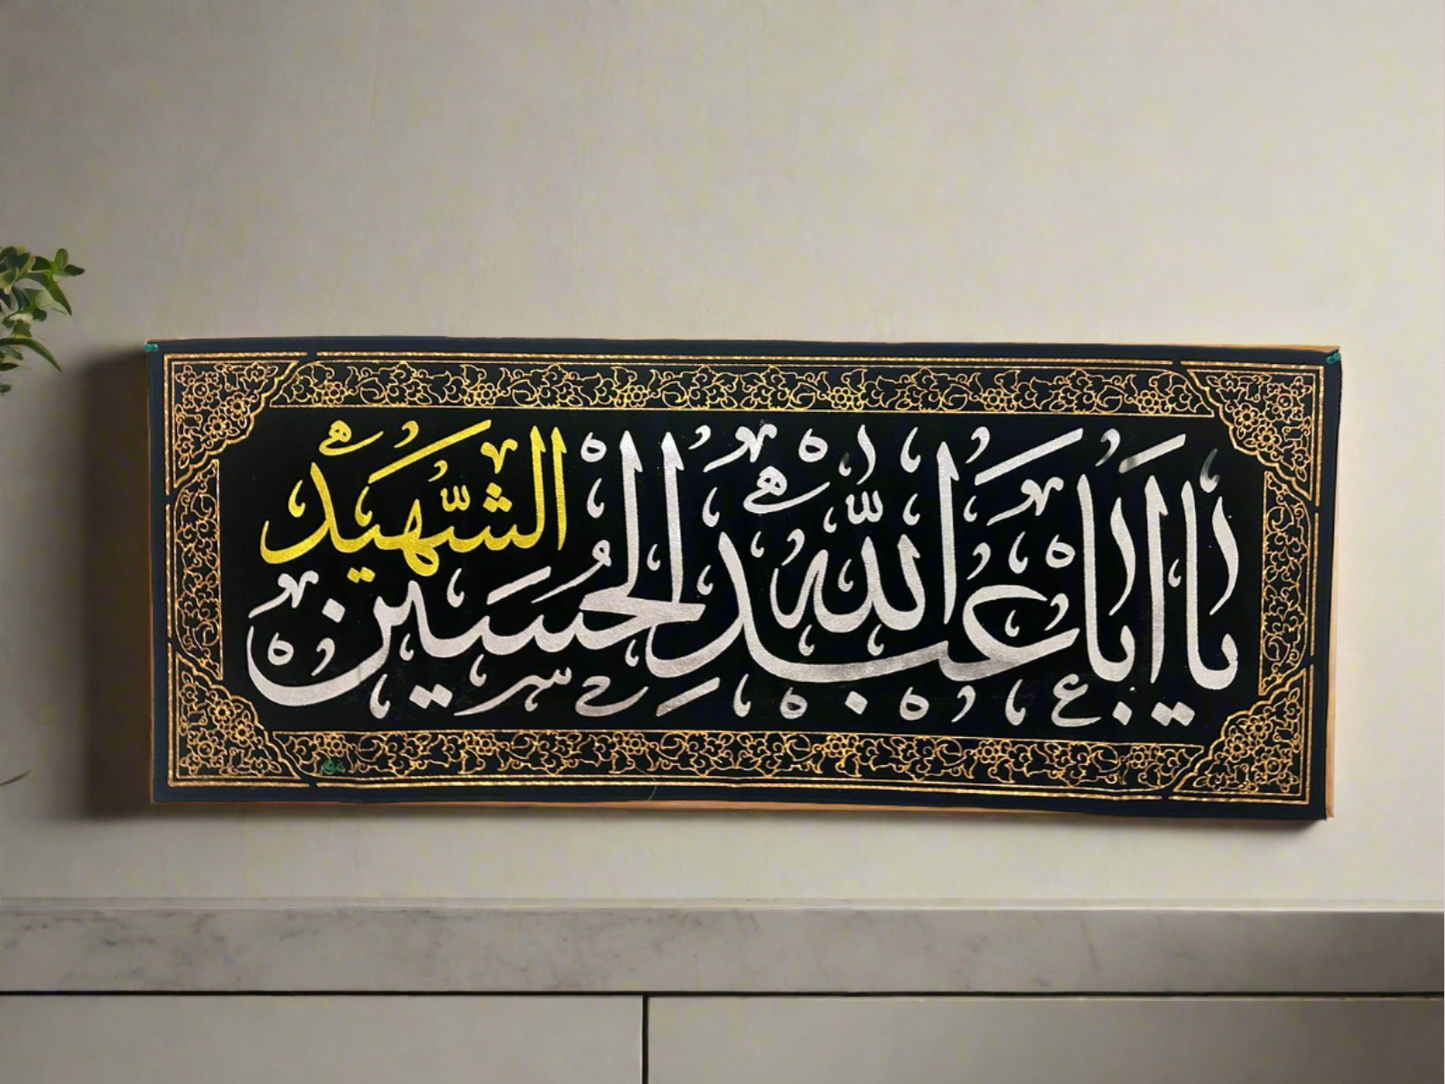 يا اَبا عَبدِ اللّٰه الحُسَين الشَّهيد